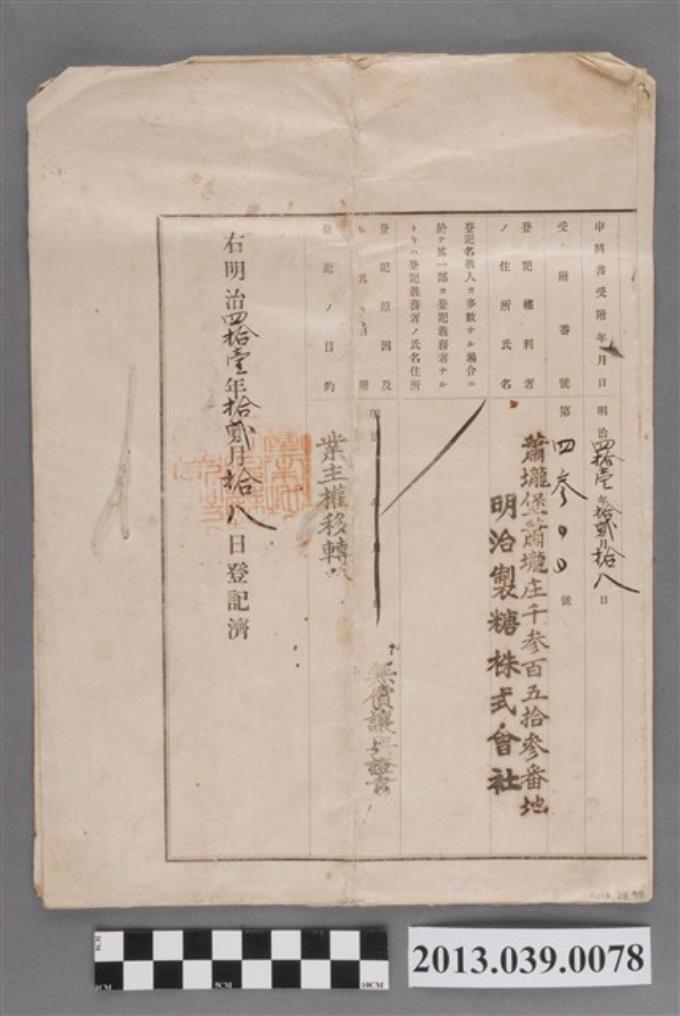 申請書受附年月日
明治四拾壹年拾貳月拾八日
受附番號
第四参
號
登記權利者ノ住所氏名
蕭壠堡蕭壠庄千参百五拾参番地
明治製糖株式會社
登記名義人カ多數ナル場合ニ
於テ其一部カ登記義務者ナル
トキハ登記義務者ノ氏名住所
登記原因及
其
附
明治 年 月
無償讓與證書
登記ノ目的
業主權移轉
右明治四拾壹年拾貳月拾八日登記濟
0CM
5CM
10CM
2013.039.0078